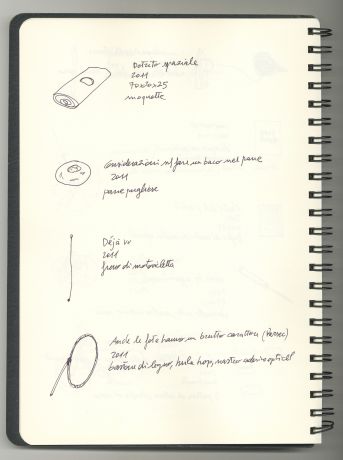 Detrito spaziale
2011
70x20x25
moquette
Considerazioni sul fare un buco nel pane
2011
pane pugliese
Déjà vu
2011
freno di motocicletta
Anche le fate hanno un brutto carattere (Perrec)
2011
bastone di legno, hula hop, nastro adesivo optical